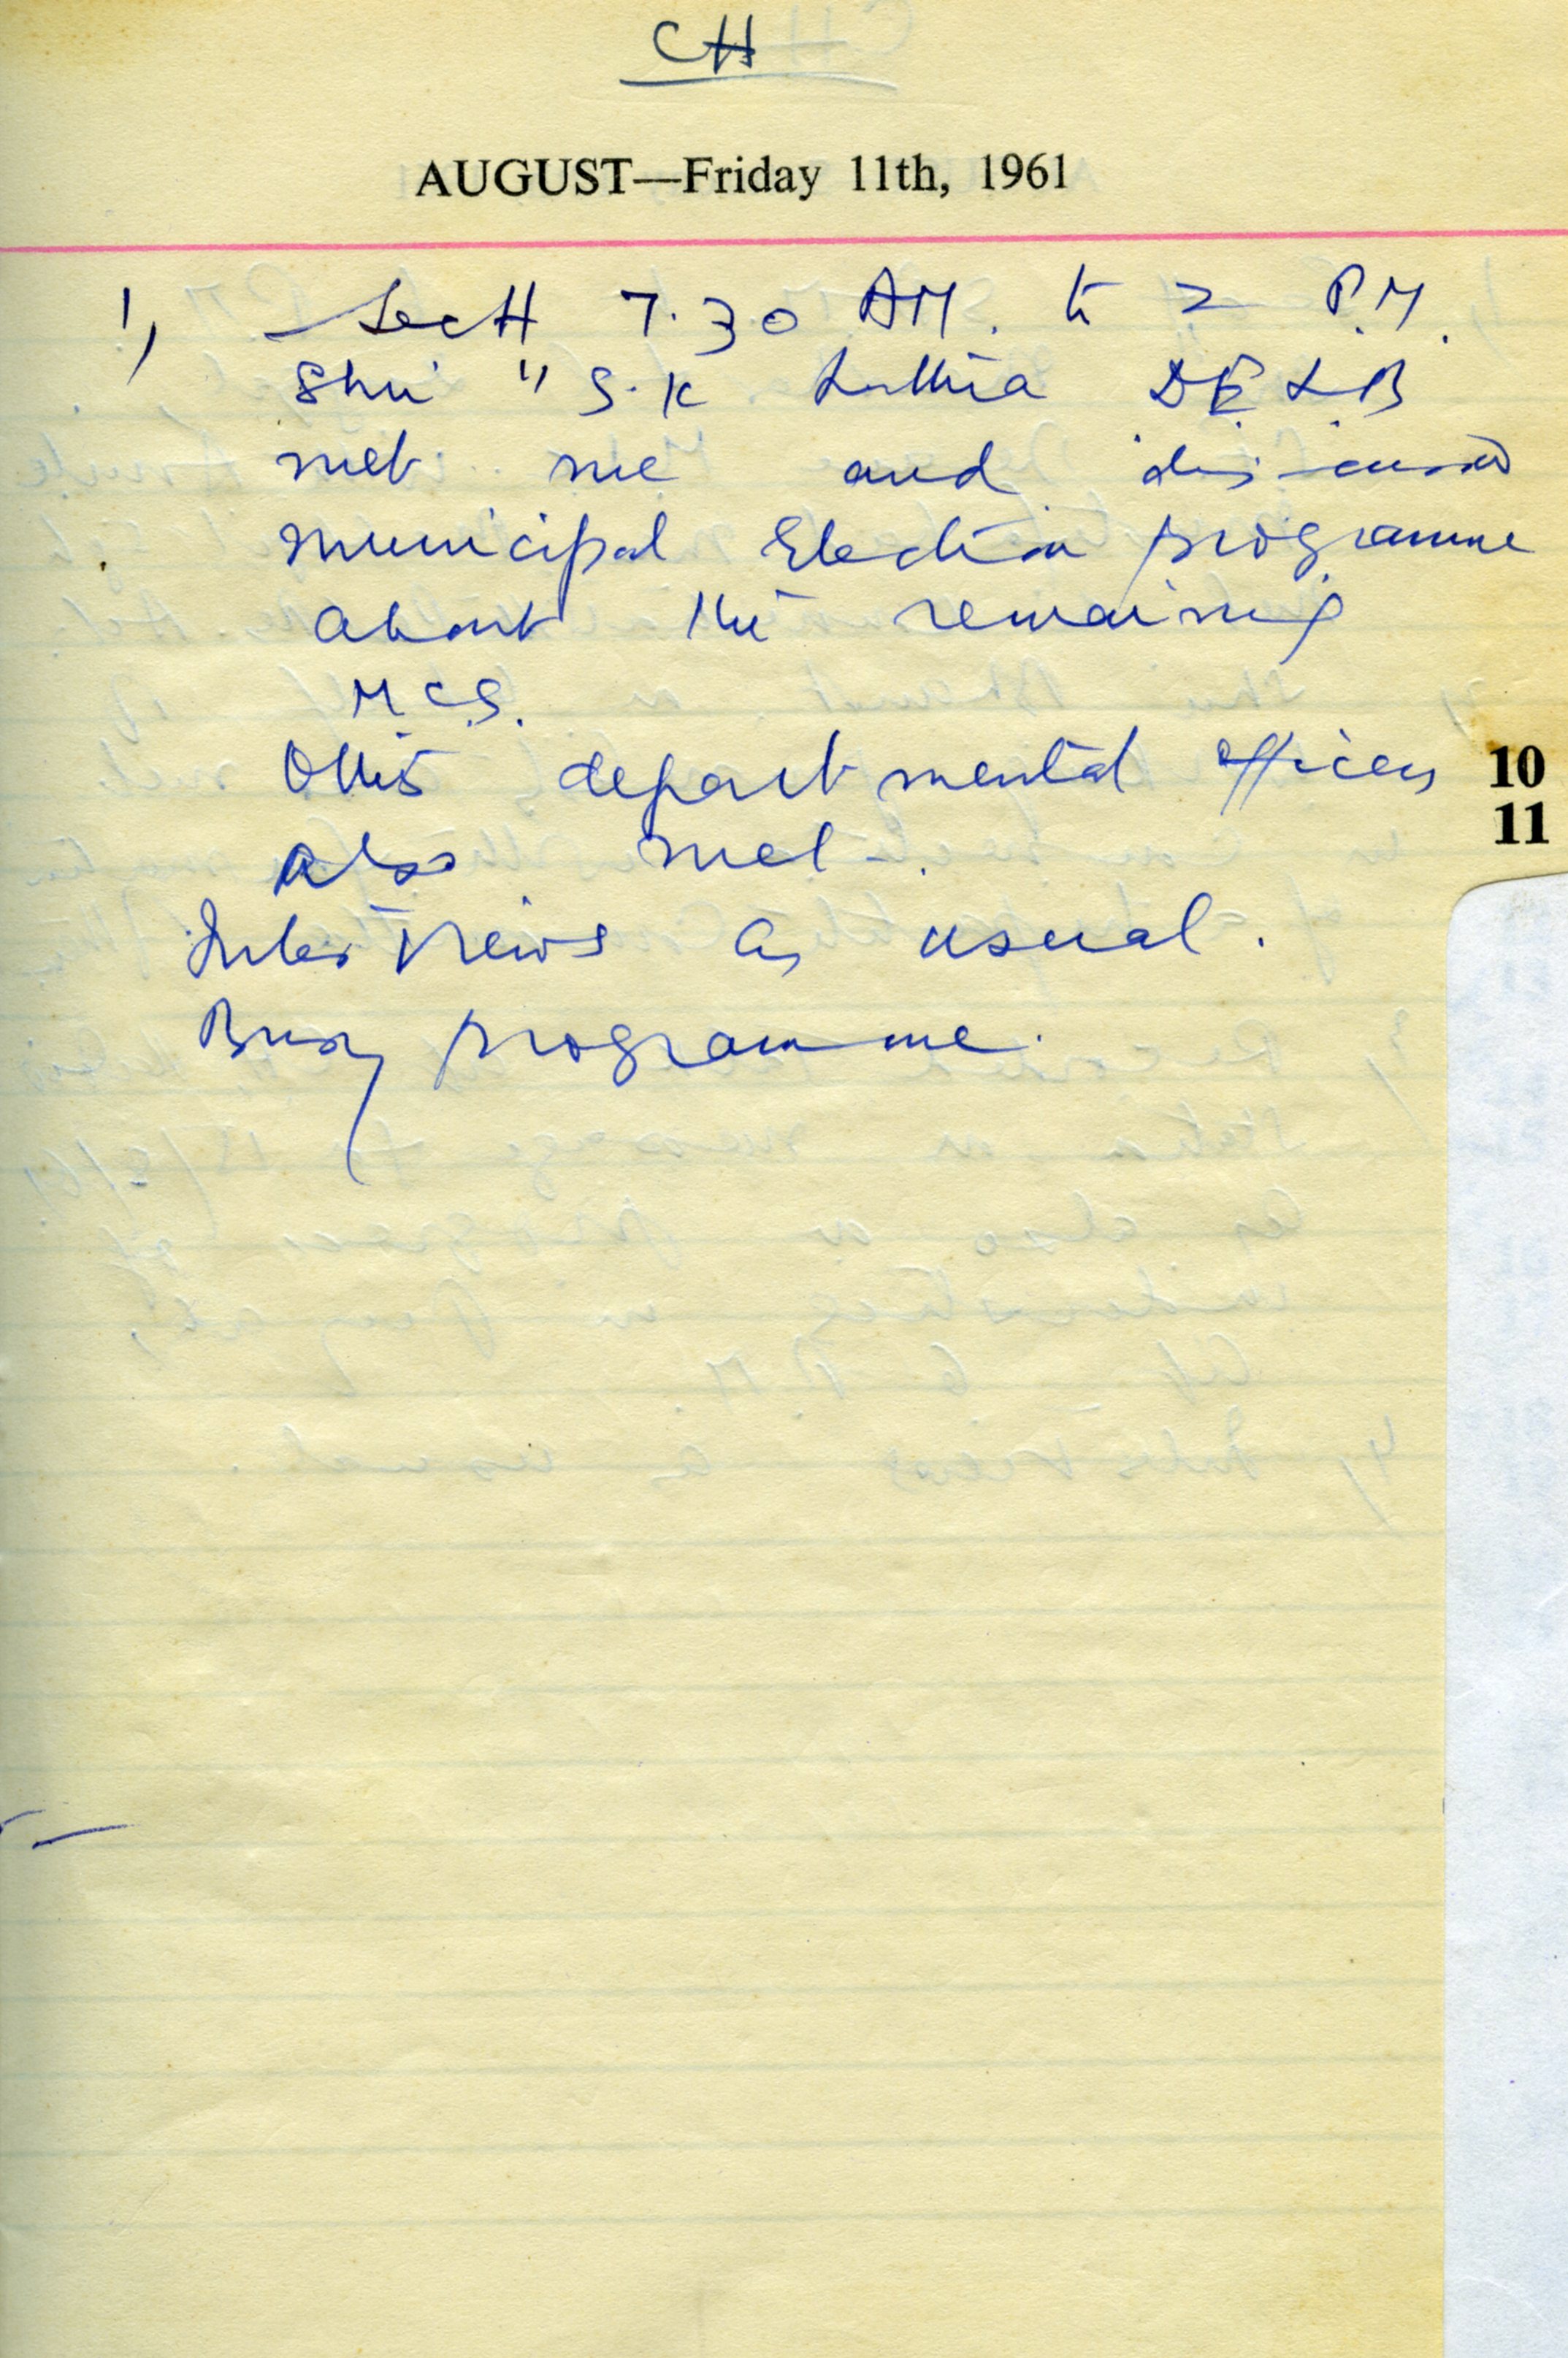 CH
AUGUST—Friday 11th, 1961
1, Sectt 7.30 AM. to 2 P.M.
Shri " S.K. Luthra DE LB
met me and discussed
municipal Election programme
about the remaining
M.C.S.
Other departmental officers
also met.
Interviews as usual.
Busy programme.
10
11